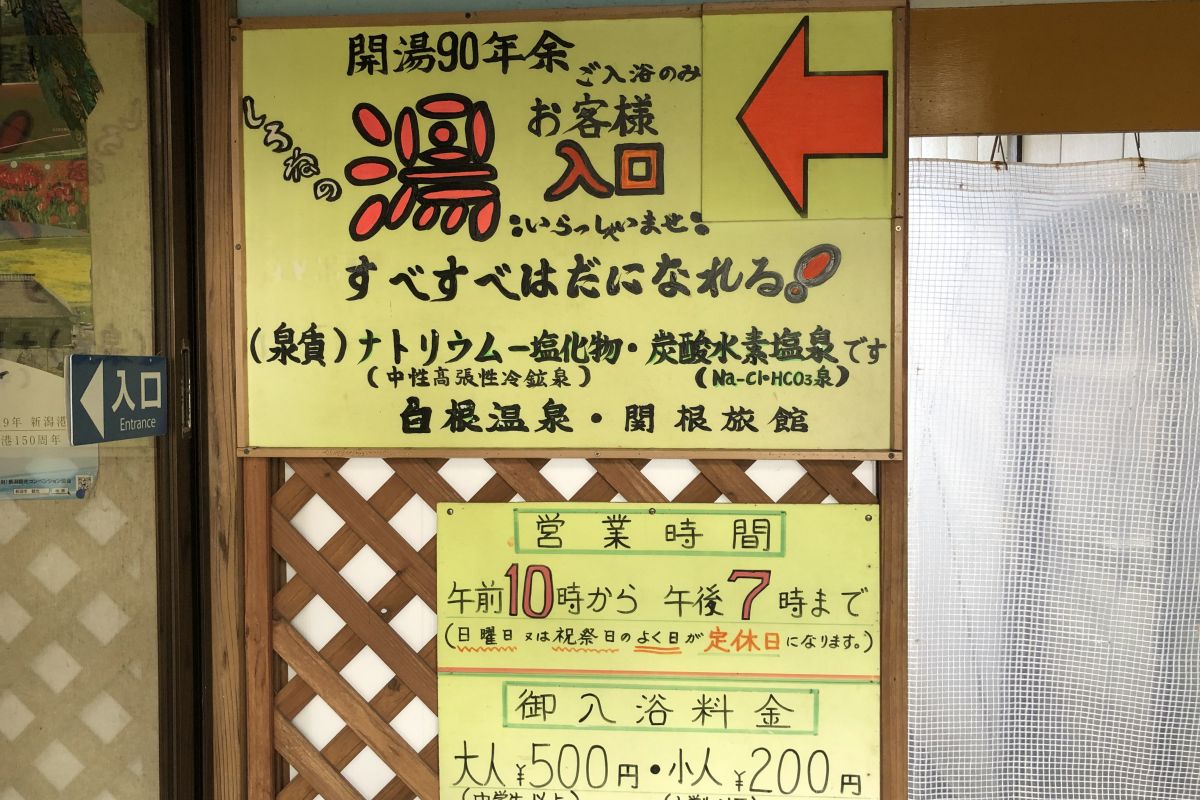 開湯90年余
ご入浴のみ
お客様
入口
しろねの
湯
いらっしゃいませ
すべすべはだになれる!
(泉質)ナトリウムー塩化物・炭酸水素塩泉です
(中性高張性冷鉱泉)
(Na-Cl・HCO3泉)
白根温泉・関根旅館
入口
Entrance
9年 新潟港
港150周年
営業時間
午前10時から 午後7時まで
(日曜日又は祝祭日のよく日が定休日になります。)
御入浴料金
大人¥500円・小人¥200円